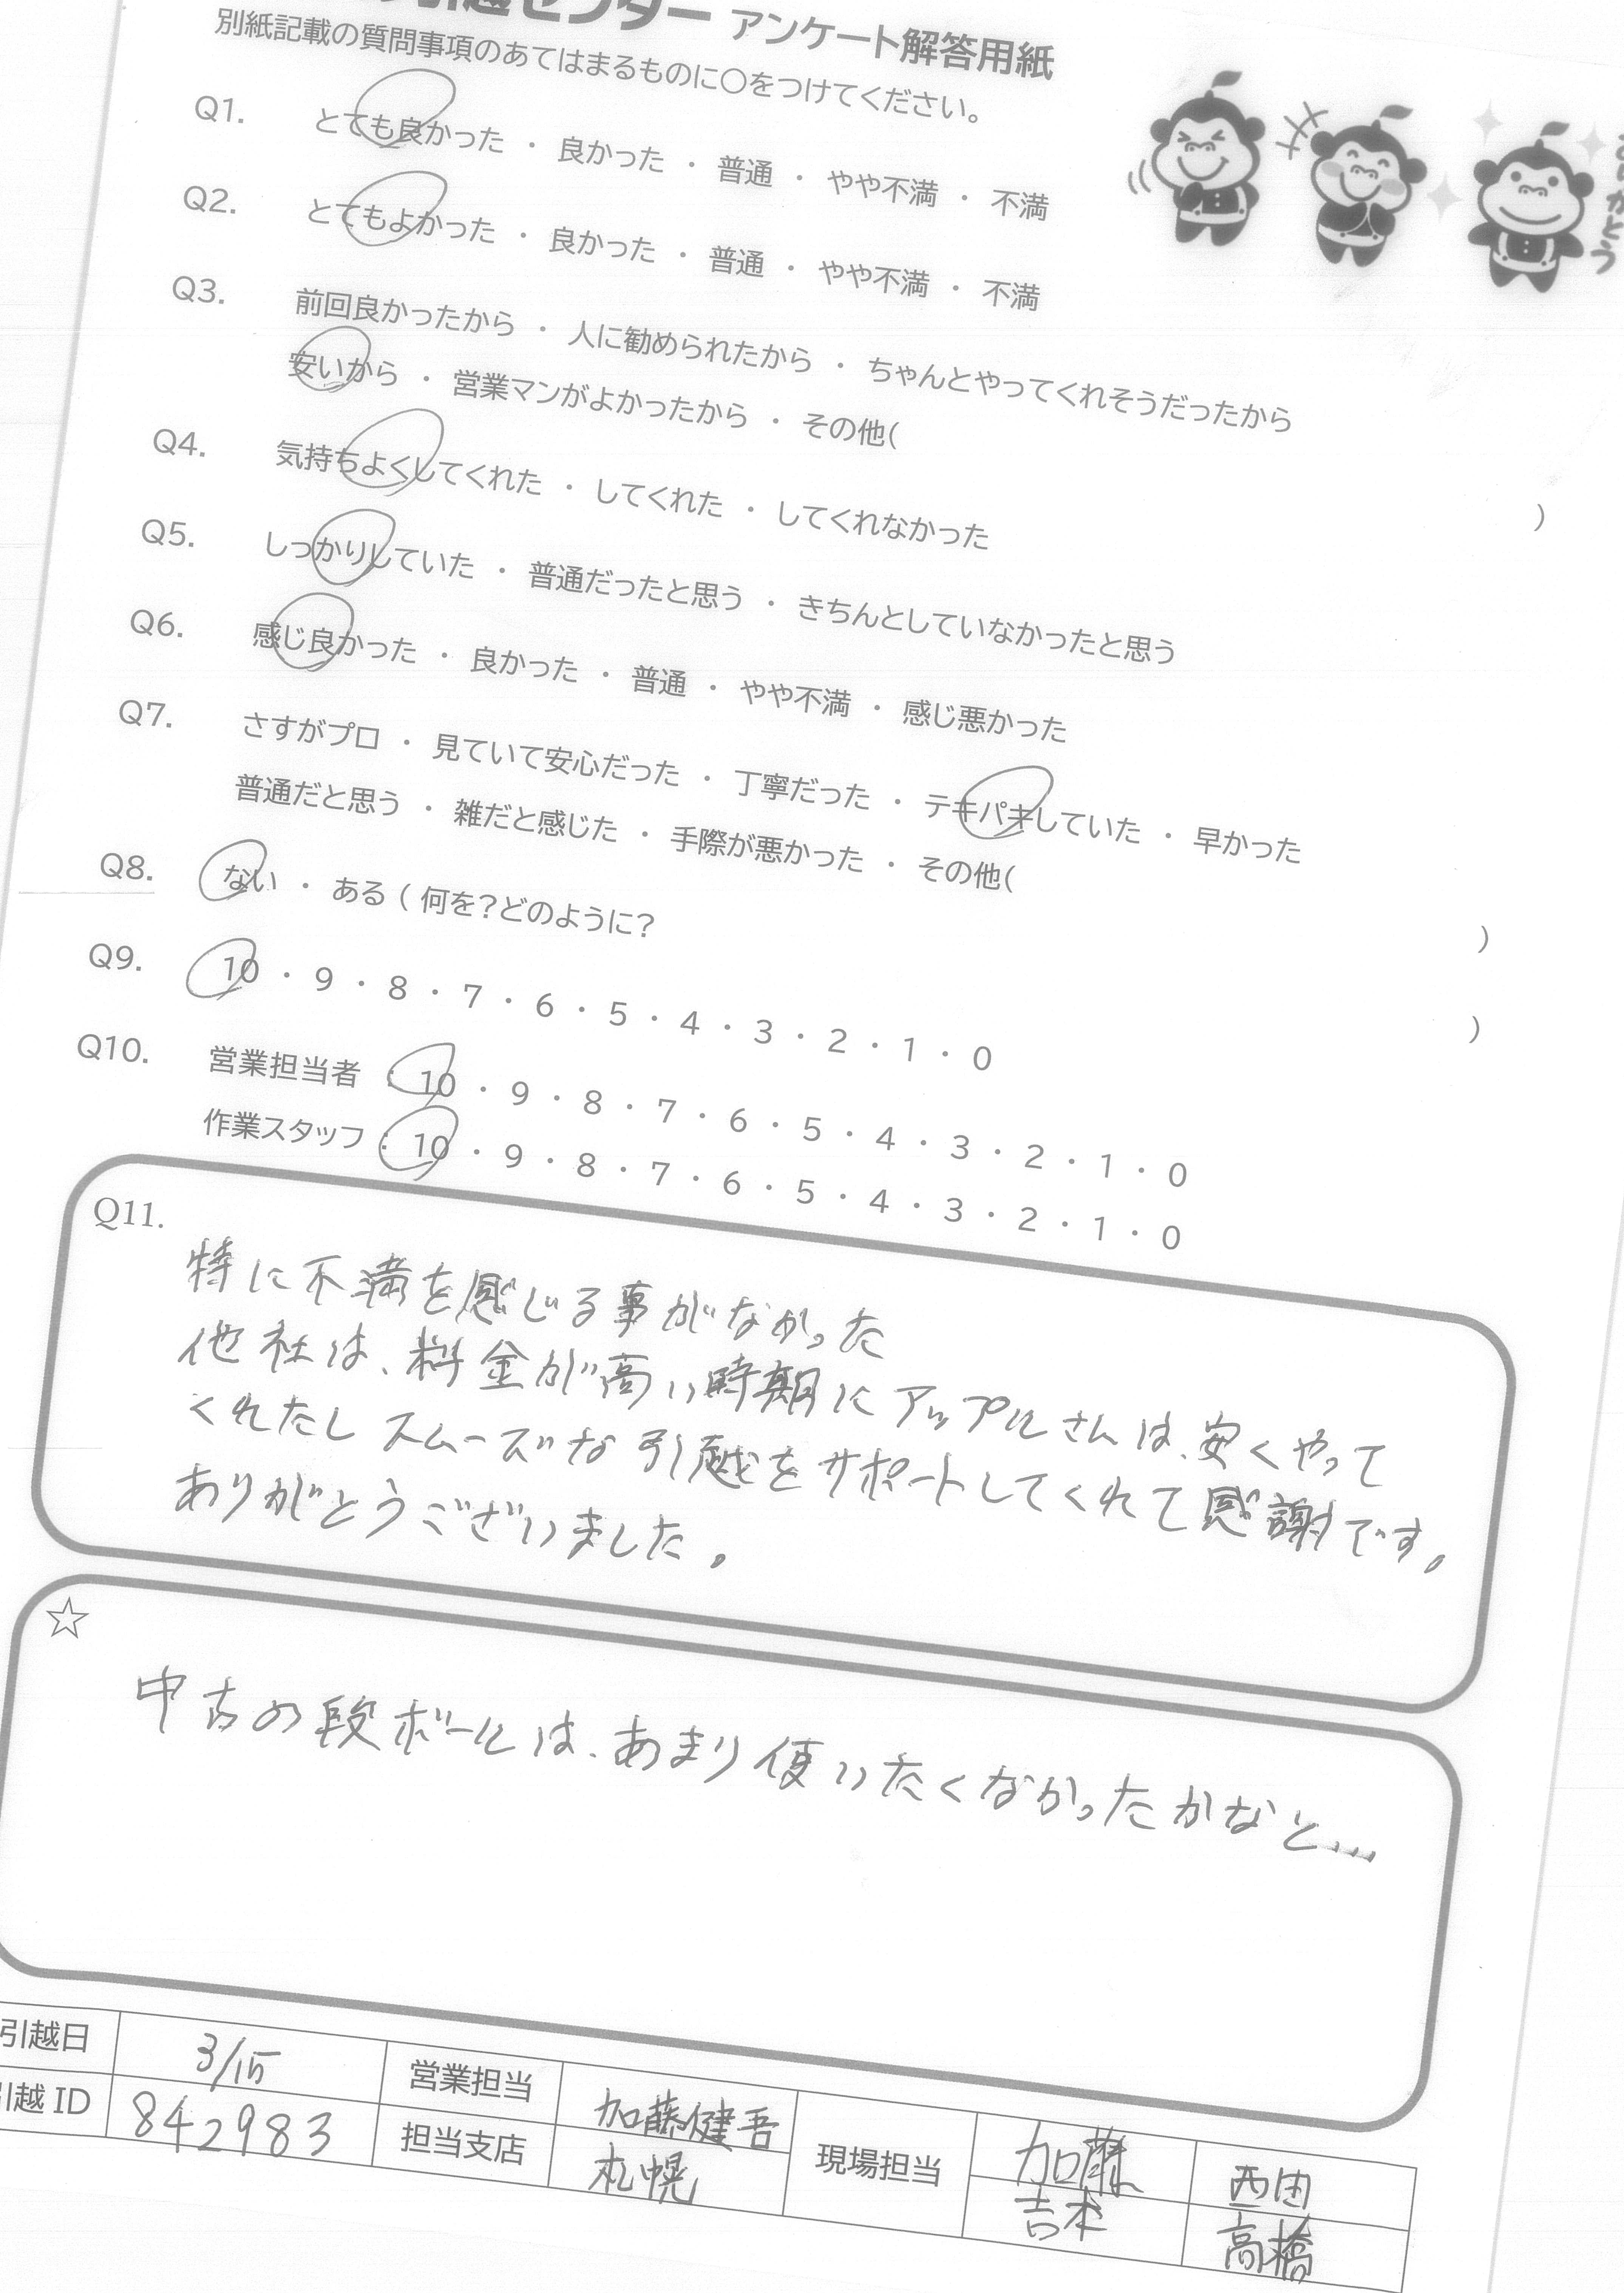 引越センター アンケート解答用紙
別紙記載の質問事項のあてはまるものに〇をつけてください。
ありがとう
Q1. とても良かった ・ 良かった ・ 普通 ・ やや不満 ・ 不満
Q2. とてもよかった ・ 良かった ・ 普通 ・ やや不満 ・ 不満
Q3. 前回良かったから ・ 人に勧められたから ・ ちゃんとやってくれそうだったから
安いから ・ 営業マンがよかったから ・ その他( )
Q4. 気持ちよくしてくれた ・ してくれた ・ してくれなかった
Q5. しっかりしていた ・ 普通だったと思う ・ きちんとしていなかったと思う
Q6. 感じ良かった ・ 良かった ・ 普通 ・ やや不満 ・ 感じ悪かった
Q7. さすがプロ ・ 見ていて安心だった ・ 丁寧だった ・ テキパキしていた ・ 早かった
普通だと思う ・ 雑だと感じた ・ 手際が悪かった ・ その他( )
Q8. ない ・ ある ( 何を?どのように? )
Q9. 10 ・ 9 ・ 8 ・ 7 ・ 6 ・ 5 ・ 4 ・ 3 ・ 2 ・ 1 ・ 0
Q10. 営業担当者 : 10 ・ 9 ・ 8 ・ 7 ・ 6 ・ 5 ・ 4 ・ 3 ・ 2 ・ 1 ・ 0
作業スタッフ : 10 ・ 9 ・ 8 ・ 7 ・ 6 ・ 5 ・ 4 ・ 3 ・ 2 ・ 1 ・ 0
Q11.
特に不満を感じる事がなかった
他社は、料金が高い時期にアップルさんは、安くやって
くれたしスムーズな引越をサポートしてくれて感謝です。
ありがとうございました。
☆
中古の段ボールは、あまり使いたくなかったかなと…
引越日 3/15 営業担当 加藤健吾 現場担当 加藤 西田
引越 ID 842983 担当支店 札幌 吉本 高橋